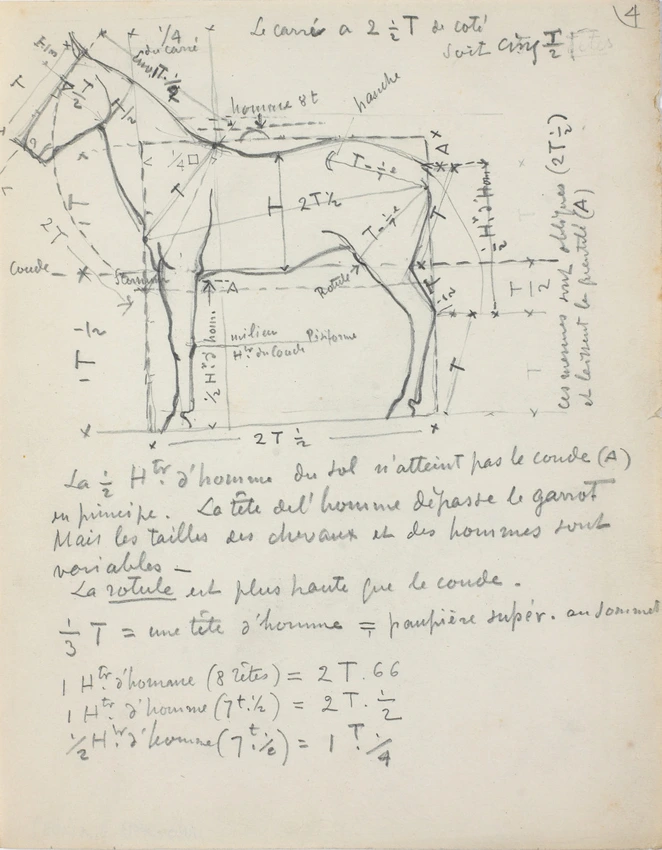 4
Le carré a 2 1/2 T de coté
soit cinq T/2 têtes
1/4
du carré
T
T 1/2
T/2
homme 8t
hanche
A
1/4 □
T
T 1/2
2T 1/2
T 1/2
T
1/2 Htr d'Hom
T
2T
Coude
Sternum
A
Rotule
1/2
T/2
T
1 T 1/2
1/2 Htr d'hom
milieu
Htr du Coude
Pisiforme
2T 1/2
ces mesures sont obliques (2T 1/2)
et laissent la (A)
La 1/2 Htr. d'homme du sol n'atteint pas le coude (A)
en principe. La tête de l'homme dépasse le garrot
Mais les tailles des chevaux et des hommes sont
variables —
La rotule est plus haute que le coude.
1/3 T = une tête d'homme = paupière supér. au sommet
1 Htr. d'homme (8 têtes) = 2 T. 66
1 Htr. d'homme (7t. 1/2) = 2 T. 1/2
1/2 Htr. d'homme (7t. 1/2) = 1 T. 1/4